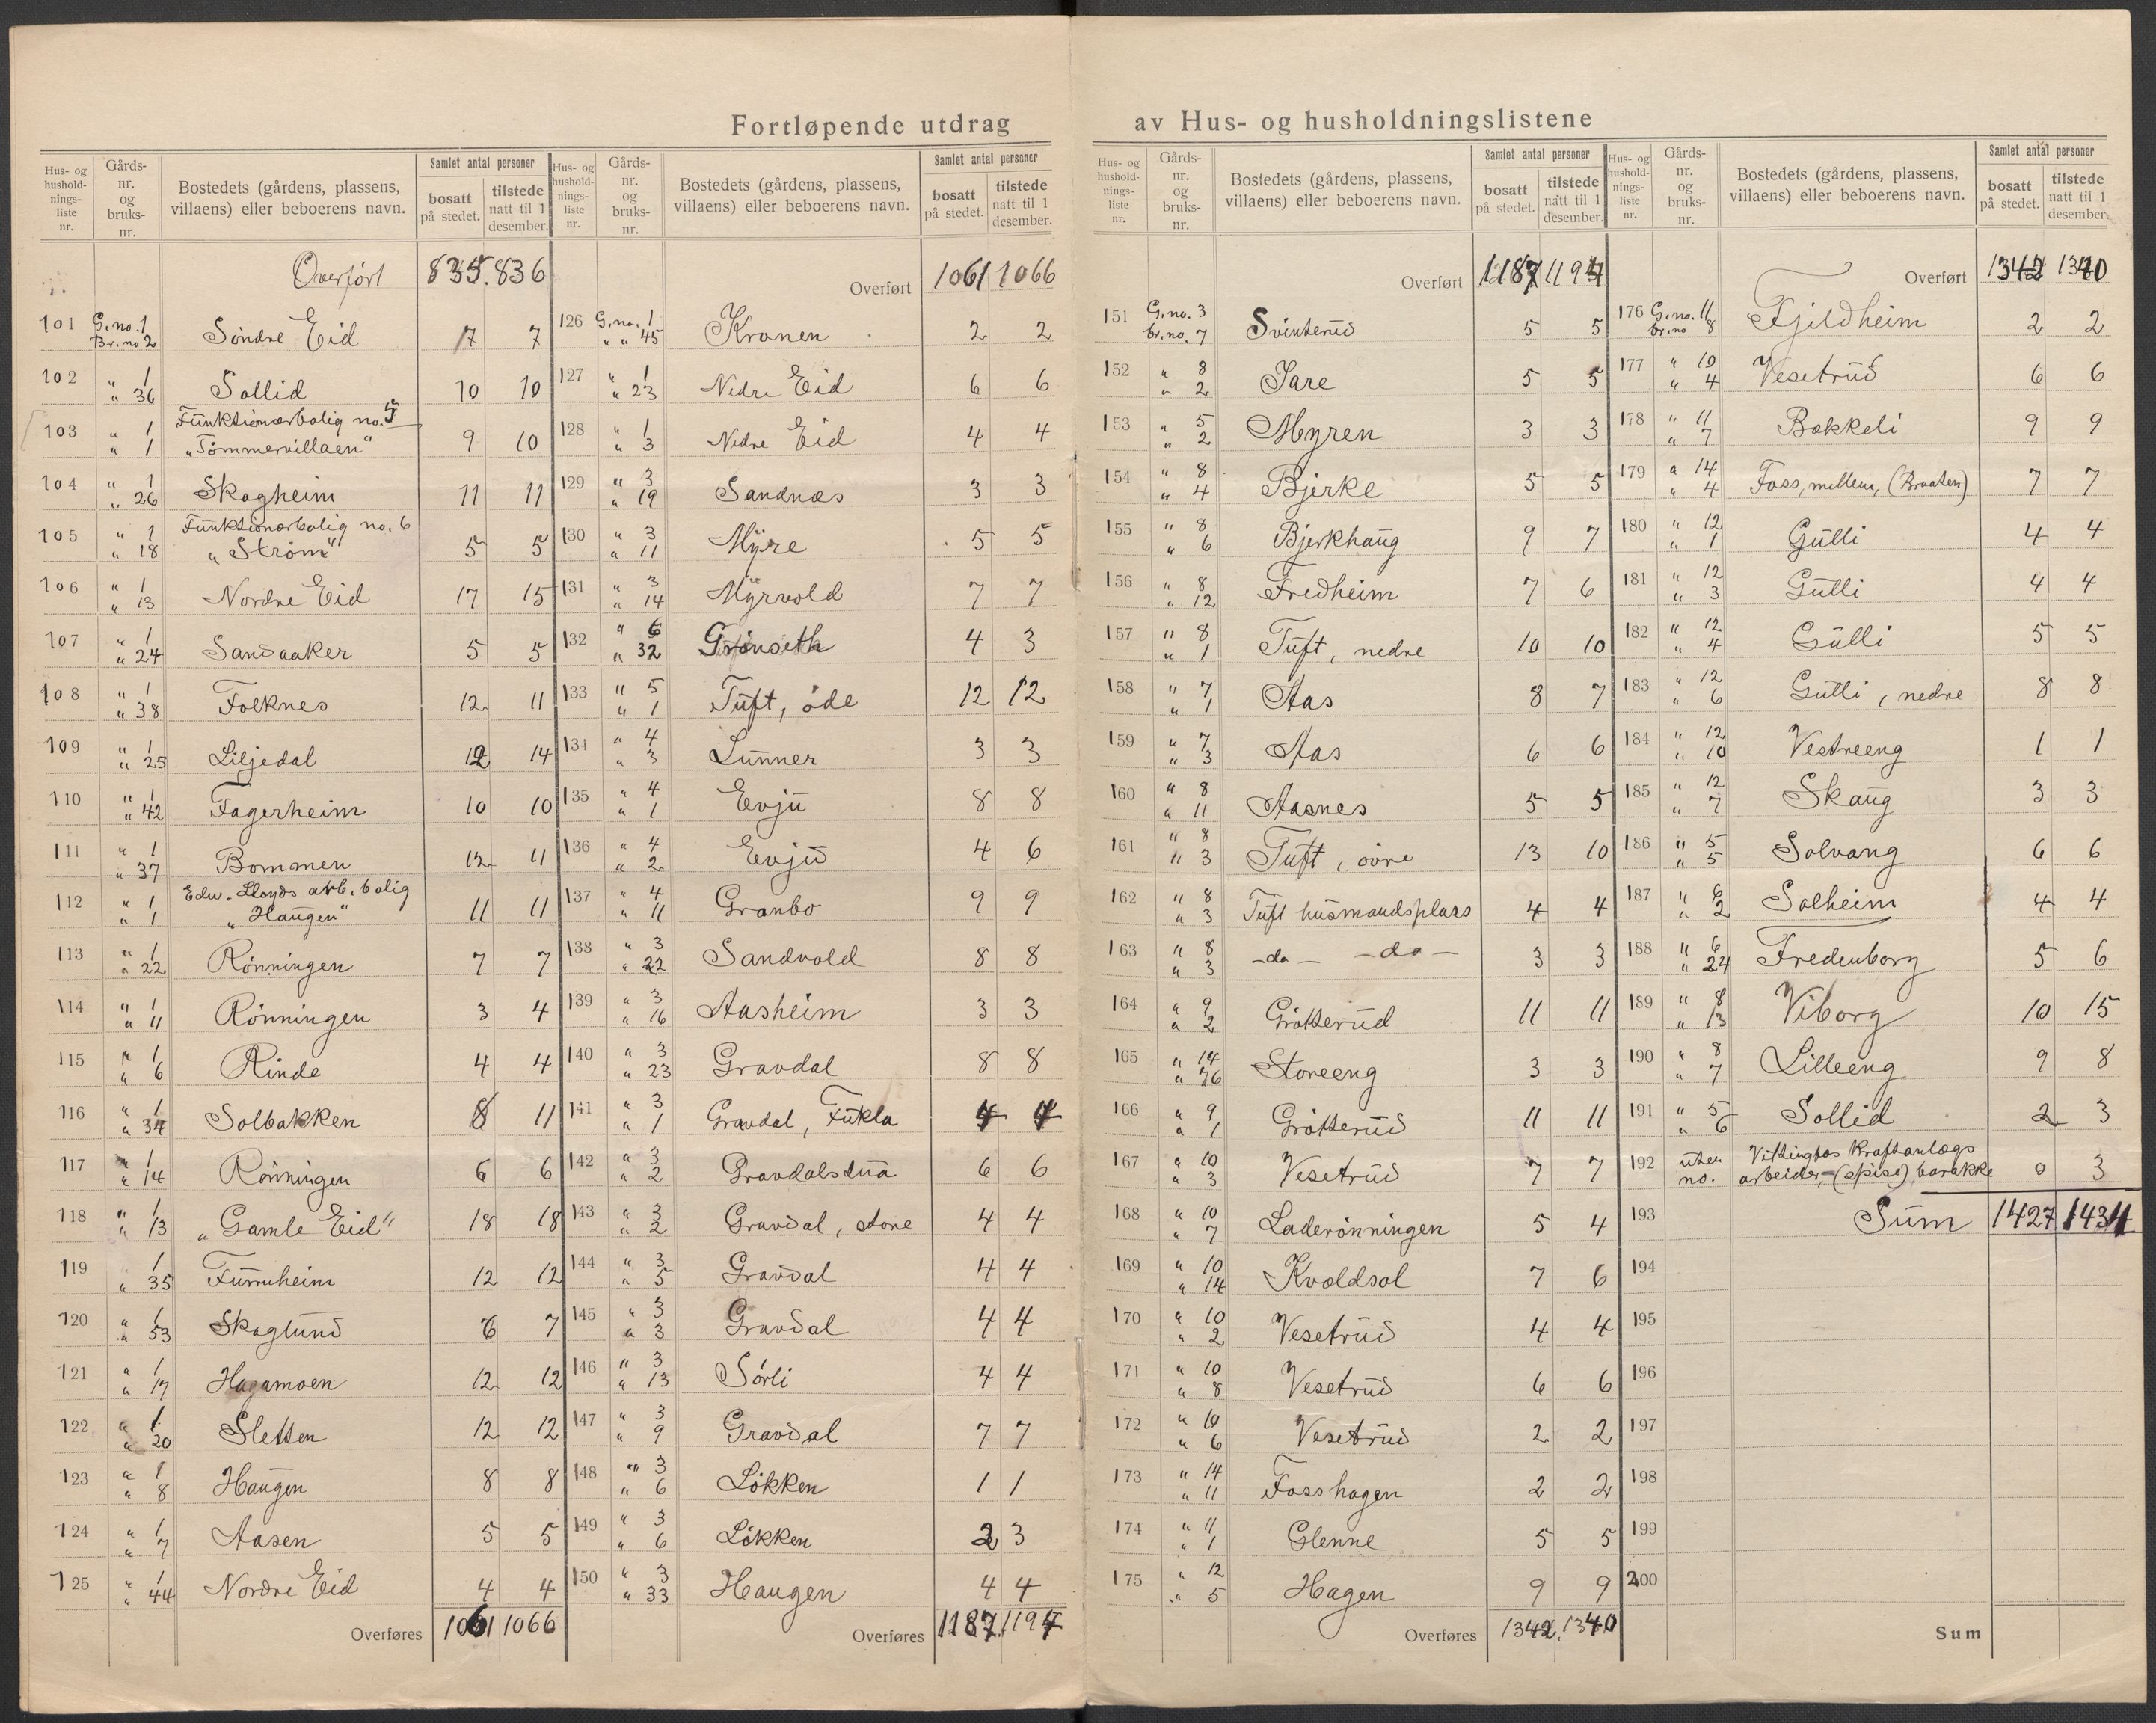 Fortløpende utdrag av Hus- og husholdningslistene
Hus- og hushold- nings- liste nr. | Gårds- nr. og bruks- nr. | Bostedets (gårdens, plassens, villaens) eller beboerens navn. | Samlet antal personer bosatt på stedet. | tilstede natt til 1 desember.
Overført 835. 836
101 G.no. 1 Br.no 2 Søndre Eid 7 7
102 " 1 " 36 Sollid 10 10
103 " 1 " 1 Funktionærbolig no. 5 „Tømmervillaen" 9 10
104 " 1 " 26 Skogheim 11 11
105 " 1 " 18 Funktionærbolig no. 6 „Strøm" 5 5
106 " 1 " 13 Nordre Eid 17 15
107 " 1 " 24 Sandaaker 5 5
108 " 1 " 38 Folknes 12 11
109 " 1 " 25 Liljedal 12 14
110 " 1 " 42 Fagerheim 10 10
111 " 1 " 37 Bommen 12 11
112 " 1 " 1 Edw. Lloyds arb. bolig „Haugen" 11 11
113 " 1 " 22 Rønningen 7 7
114 " 1 " 11 Rønningen 3 4
115 " 1 " 6 Rinde 4 4
116 " 1 " 34 Solbakken 8 11
117 " 1 " 14 Rønningen 6 6
118 " 1 " 13 „Gamle Eid" 18 18
119 " 1 " 35 Furruheim 12 12
120 " 1 " 53 Skoglund 6 7
121 " 1 " 17 Hagamoen 12 12
122 " 1 " 20 Sletten 12 12
123 " 1 " 8 Haugen 8 8
124 " 1 " 7 Aasen 5 5
125 " 1 " 44 Nordre Eid 4 4
Overføres 1061 1066
Hus- og hushold- nings- liste nr. | Gårds- nr. og bruks- nr. | Bostedets (gårdens, plassens, villaens) eller beboerens navn. | Samlet antal personer bosatt på stedet. | tilstede natt til 1 desember.
Overført 1061 1066
126 G.no. 1 " " 45 Kronen 2 2
127 " 1 " 23 Nedre Eid 6 6
128 " 1 " 3 Nedre Eid 4 4
129 " 3 " 19 Sandnæs 3 3
130 " 3 " 11 Myre 5 5
131 " 3 " 14 Myrvold 7 7
132 " 6 " 32 Grønseth 4 3
133 " 5 " 1 Tuft, øde 12 12
134 " 4 " 3 Lunner 3 3
135 " 4 " 1 Evju 8 8
136 " 4 " 2 Evju 4 6
137 " 4 " 11 Granbo 9 9
138 " 3 " 22 Sandvold 8 8
139 " 3 " 16 Aasheim 3 3
140 " 3 " 23 Gravdal 8 8
141 " 3 " 1 Gravdal, Fukla 4 4
142 " 3 " 2 Gravdalstua 6 6
143 " 3 " 2 Gravdal, store 4 4
144 " 3 " 5 Gravdal 4 4
145 " 3 " 3 Gravdal 4 4
146 " 3 " 13 Sørli 4 4
147 " 3 " 9 Gravdal 7 7
148 " 3 " 6 Løkken 1 1
149 " 3 " 6 Løkken 3 3
150 " 3 " 33 Haugen 4 4
Overføres 1187. 1194
Hus- og hushold- nings- liste nr. | Gårds- nr. og bruks- nr. | Bostedets (gårdens, plassens, villaens) eller beboerens navn. | Samlet antal personer bosatt på stedet. | tilstede natt til 1 desember.
Overført 1187 1194
151 G.no. 3 br.no. 7 Svinterud 5 5
152 " 8 " 2 Jare 5 5
153 " 5 " 2 Myren 3 3
154 " 8 " 4 Bjerke 5 5
155 " 8 " 6 Bjerkhaug 9 7
156 " 8 " 12 Fredheim 7 6
157 " 8 " 1 Tuft, nedre 10 10
158 " 7 " 1 Aas 8 7
159 " 7 " 3 Aas 6 6
160 " 8 " 11 Aasnes 5 5
161 " 8 " 3 Tuft, øvre 13 10
162 " 8 " 3 Tuft husmandsplass 4 4
163 " 8 " 3 -do- -do- 3 3
164 " 9 " 2 Grøtterud 11 11
165 " 14 " 76 Storeeng 3 3
166 " 9 " 1 Grøtterud 11 11
167 " 10 " 3 Vesetrud 7 7
168 " 10 " 7 Laderønningen 5 4
169 " 10 " 14 Kvældsol 7 6
170 " 10 " 2 Vesetrud 4 4
171 " 10 " 8 Vesetrud 6 6
172 " 10 " 6 Vesetrud 2 2
173 " 14 " 11 Fosshagen 2 2
174 " 11 " 1 Glenne 5 5
175 " 12 " 5 Hagen 9 9
Overføres 1342. 1340
Hus- og hushold- nings- liste nr. | Gårds- nr. og bruks- nr. | Bostedets (gårdens, plassens, villaens) eller beboerens navn. | Samlet antal personer bosatt på stedet. | tilstede natt til 1 desember.
Overført 1342 1340
176 G.no. 11 br.no 8 Fjeldheim 2 2
177 " 10 " 4 Vesetrud 6 6
178 " 11 " 7 Bækkeli 9 9
179 " 14 " 4 Foss, mellem, (Braaten) 7 7
180 " 12 " 1 Gulli 4 4
181 " 12 " 3 Gulli 4 4
182 " 12 " 4 Gulli 5 5
183 " 12 " 6 Gulli, nedre 8 8
184 " 12 " 10 Vestreeng 1 1
185 " 12 " 7 Skaug 3 3
186 " 5 " 5 Solvang 6 6
187 " 6 " 2 Solheim 4 4
188 " 6 " 24 Fredenborg 5 6
189 " 8 " 13 Viborg 10 15
190 " 8 " 7 Lilleeng 9 8
191 " 5 " 6 Sollid 2 3
192 uten no. Vittingfos Kraftanlægs arbeider-(spise) barakke 0 3
193 Sum 1427 1434
194
195
196
197
198
199
200
Sum